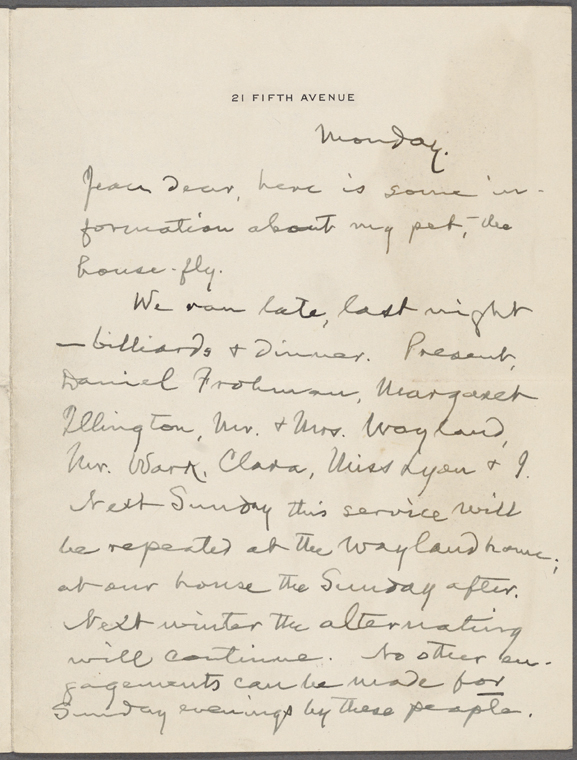 21 FIFTH AVENUE
Monday.
Jean dear, here is some in-
formation about my pet, the
house-fly.
We ran late, last night
— billiards & dinner. Present,
Daniel Frohman, Margaret
Illington, Mr. & Mrs. Wayland,
Mr. Wark, Clara, Miss Lyon & I.
Next Sunday this service will
be repeated at the Wayland home;
at our house the Sunday after.
Next winter the alternating
will continue. No other en-
gagements can be made for
Sunday evenings by these people.